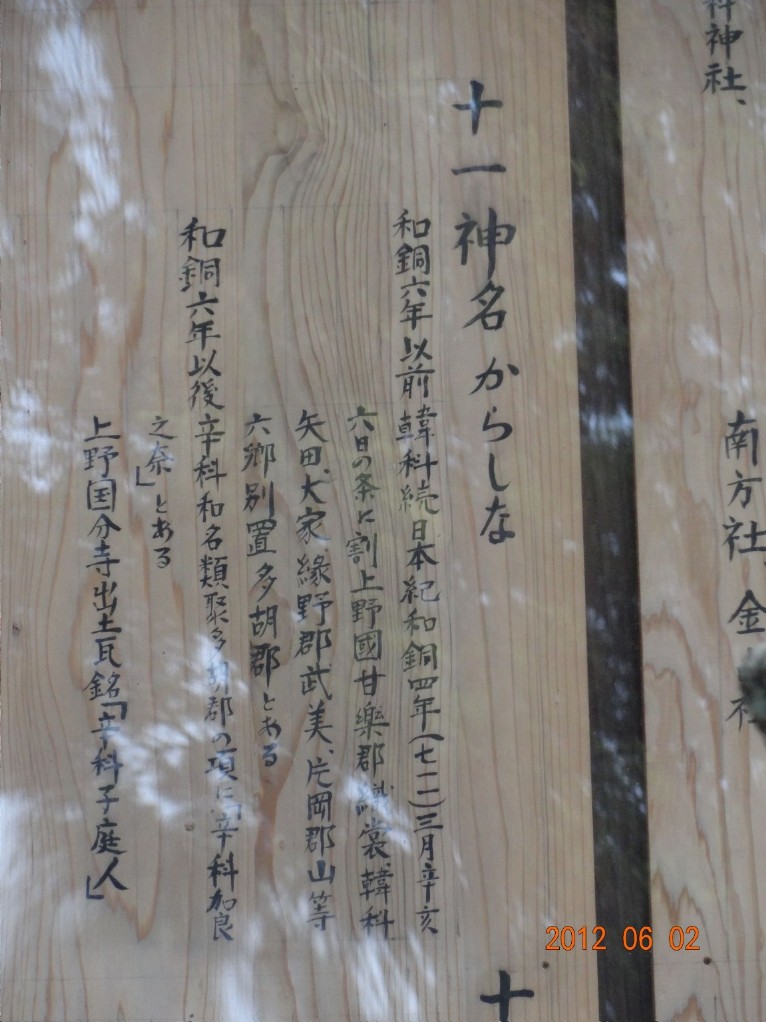 科神社、
南方社、金
社
十一 神名 からしな
和銅六年以前 韓科続日本紀和銅四年(七一一)三月辛亥
六日の条に割上野國甘樂郡織裳、韓科
矢田、大家、緑野郡武美、片岡郡山等
六郷別置多胡郡とある
和銅六年以後 辛科和名類聚多胡郡の項に「辛科加良
之奈」とある
上野国分寺出土瓦銘「辛科子庭人」
十
2012 06 02